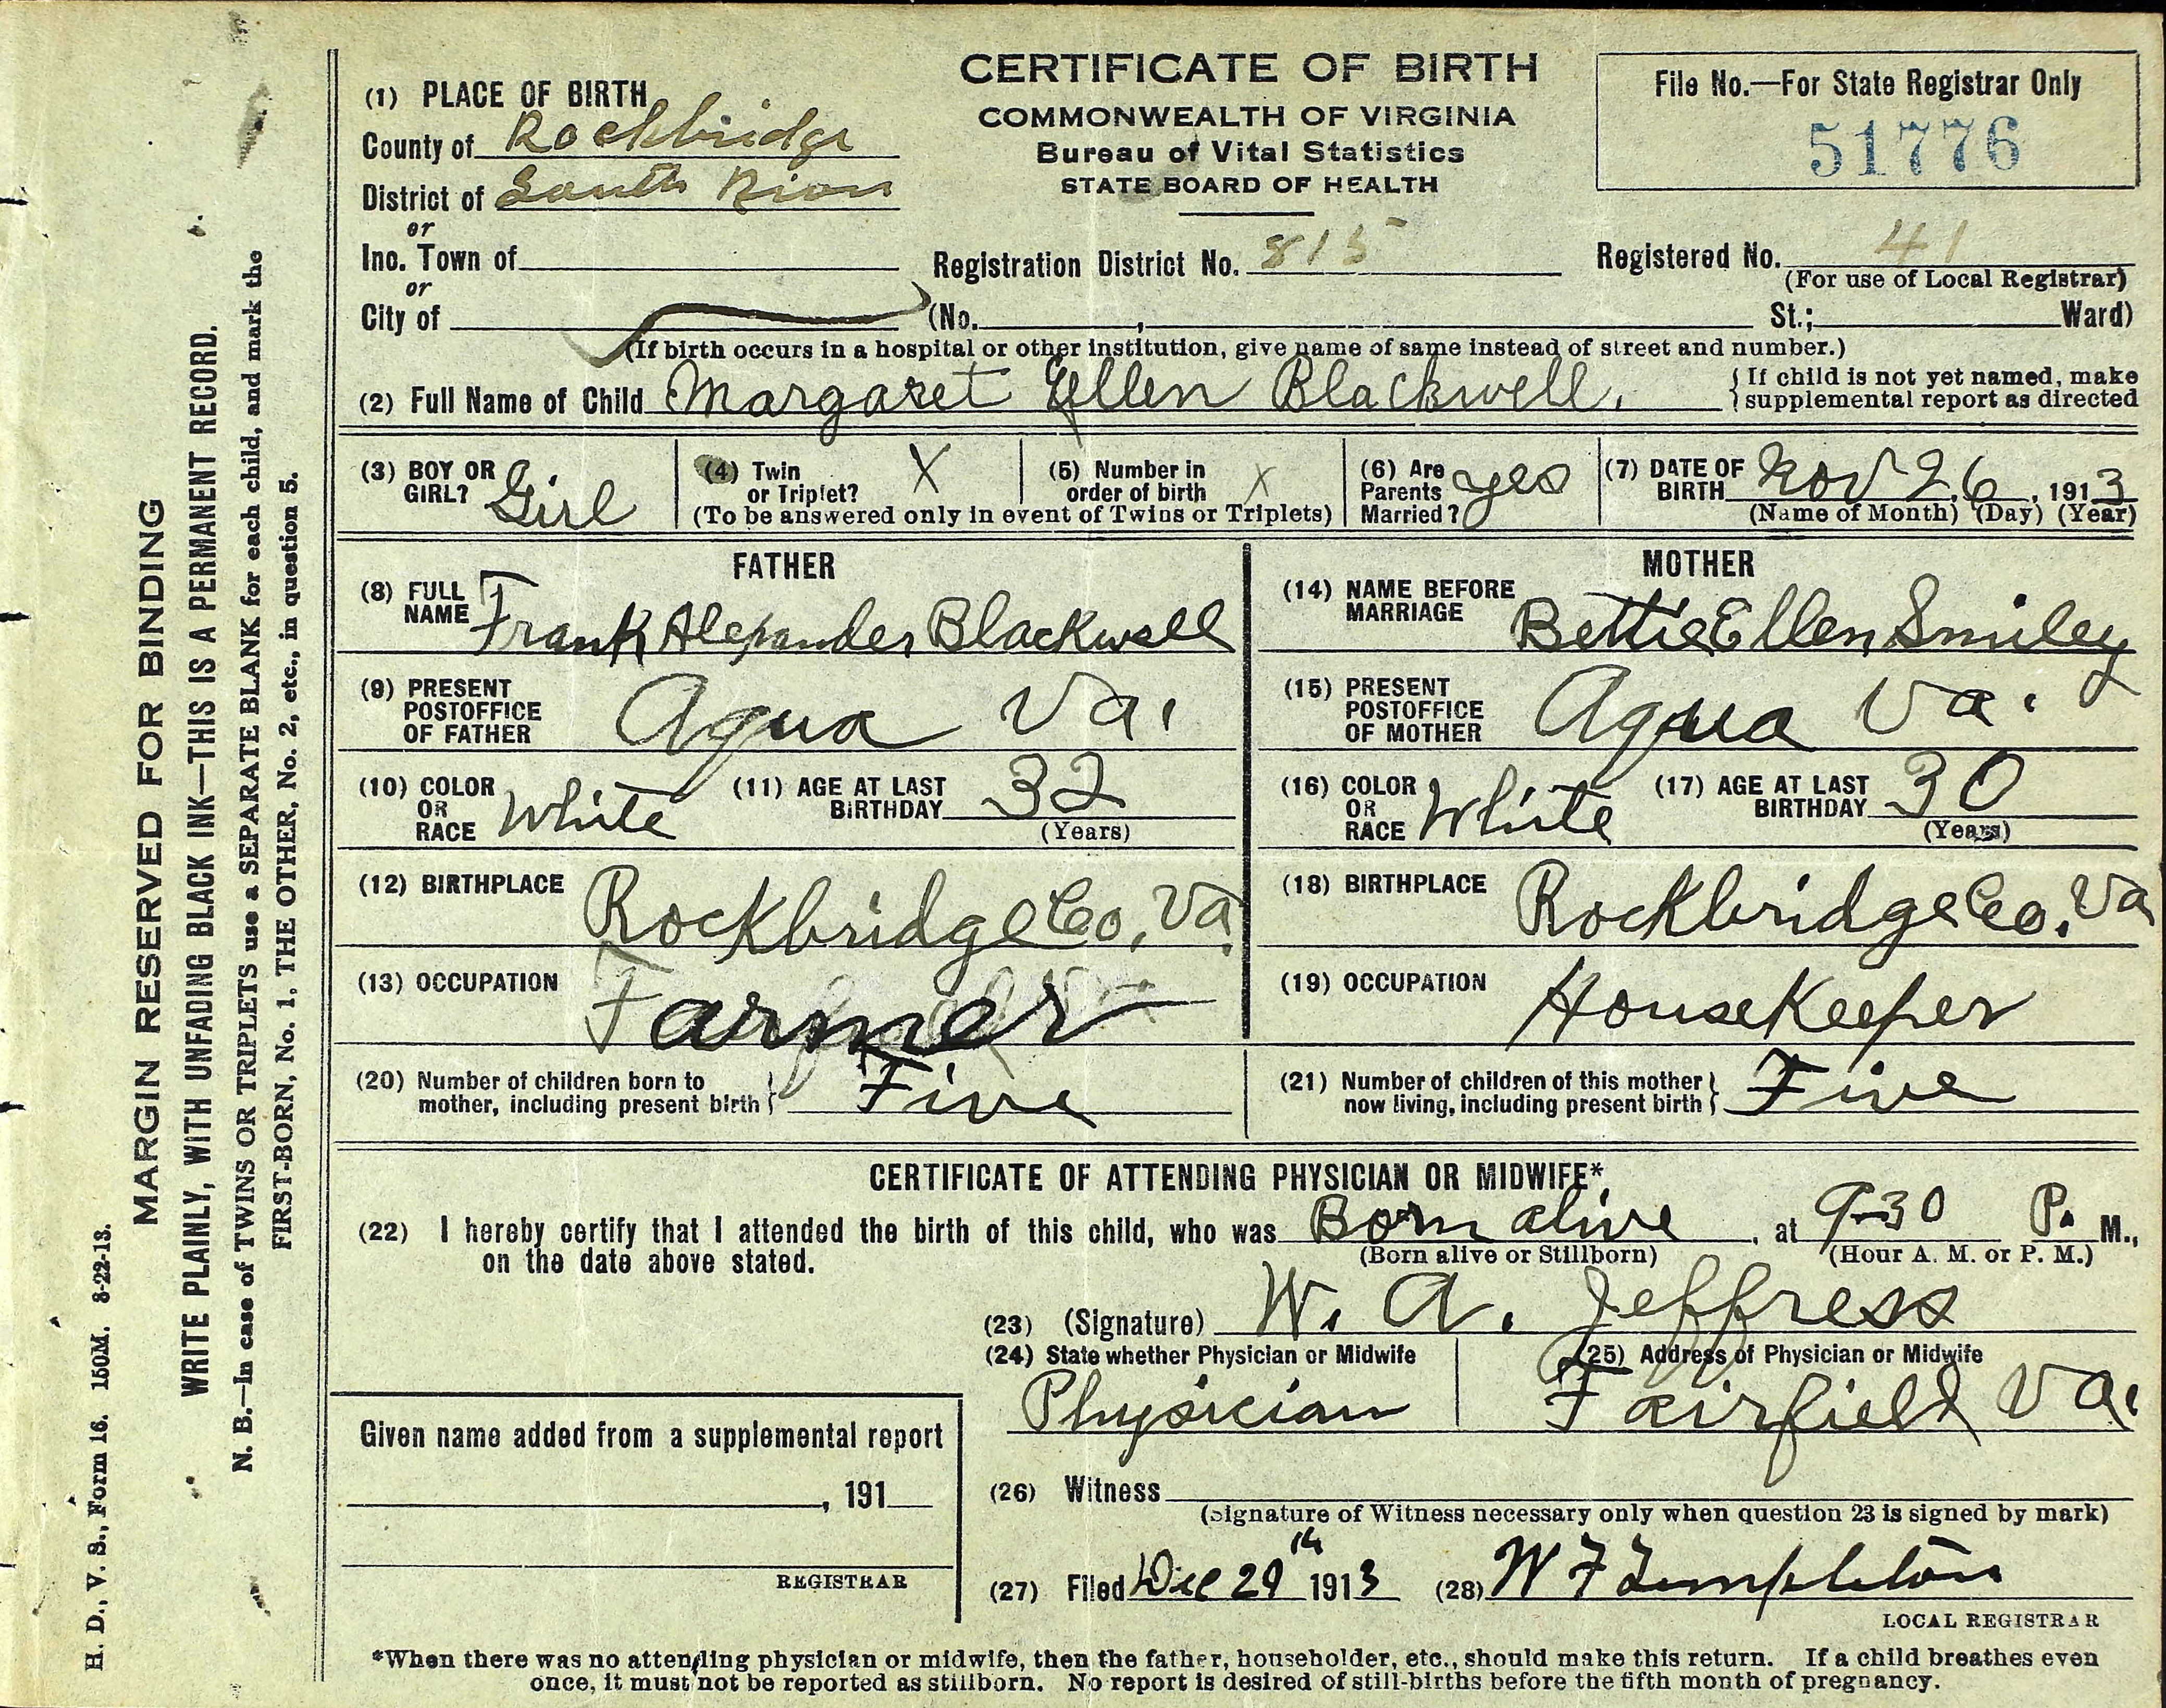 CERTIFICATE OF BIRTH
COMMONWEALTH OF VIRGINIA
Bureau of Vital Statistics
STATE BOARD OF HEALTH
File No.—For State Registrar Only
51776
(1) PLACE OF BIRTH
County of Rockbridge
District of South River
or
Inc. Town of
or
City of
Registration District No. 815
Registered No. 41
(For use of Local Registrar)
(No. , St.; Ward)
(If birth occurs in a hospital or other institution, give name of same instead of street and number.)
(2) Full Name of Child Margaret Ellen Blackwell.
{If child is not yet named, make
{supplemental report as directed
(3) BOY OR GIRL? Girl
(4) Twin or Triplet? X
(5) Number in order of birth X
(To be answered only in event of Twins or Triplets)
(6) Are Parents Married? yes
(7) DATE OF BIRTH Nov 26, 1913
(Name of Month) (Day) (Year)
FATHER
(8) FULL NAME Frank Alexander Blackwell
(9) PRESENT POSTOFFICE OF FATHER Agua Va.
(10) COLOR OR RACE White
(11) AGE AT LAST BIRTHDAY 32
(Years)
(12) BIRTHPLACE Rockbridge Co, Va.
(13) OCCUPATION Farmer
MOTHER
(14) NAME BEFORE MARRIAGE Bettie Ellen Smiley
(15) PRESENT POSTOFFICE OF MOTHER Agua Va.
(16) COLOR OR RACE White
(17) AGE AT LAST BIRTHDAY 30
(Years)
(18) BIRTHPLACE Rockbridge Co. Va
(19) OCCUPATION HouseKeeper
(20) Number of children born to mother, including present birth} Five
(21) Number of children of this mother now living, including present birth} Five
CERTIFICATE OF ATTENDING PHYSICIAN OR MIDWIFE*
(22) I hereby certify that I attended the birth of this child, who was Born alive, at 9-30 P. M.,
(Born alive or Stillborn) (Hour A. M. or P. M.)
on the date above stated.
(23) (Signature) W. A. Jeffress
(24) State whether Physician or Midwife
Physician
(25) Address of Physician or Midwife
Fairfield Va.
Given name added from a supplemental report
, 191
REGISTRAR
(26) Witness
(Signature of Witness necessary only when question 23 is signed by mark)
(27) Filed Dec 29th 1913 (28) W F Templeton
LOCAL REGISTRAR
*When there was no attending physician or midwife, then the father, householder, etc., should make this return. If a child breathes even
once, it must not be reported as stillborn. No report is desired of still-births before the fifth month of pregnancy.
MARGIN RESERVED FOR BINDING
WRITE PLAINLY, WITH UNFADING BLACK INK—THIS IS A PERMANENT RECORD.
N. B.—In case of TWINS OR TRIPLETS use a SEPARATE BLANK for each child, and mark the
FIRST-BORN, No. 1, THE OTHER, No. 2, etc., in question 5.
H. D., V. S., Form 16. 150M. 8-22-13.